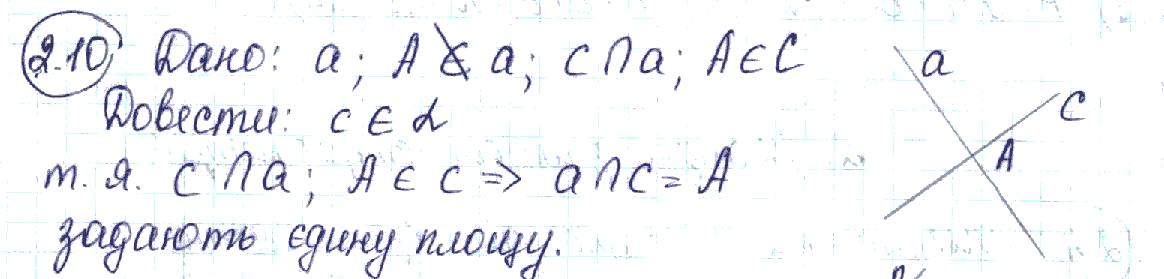 2.10 Дано: a; A ∉ a; c ∩ a; A ∈ C
Довести: c ∈ α
т. я. c ∩ a; A ∈ c => a ∩ c = A
задають єдину площу.
a
c
A